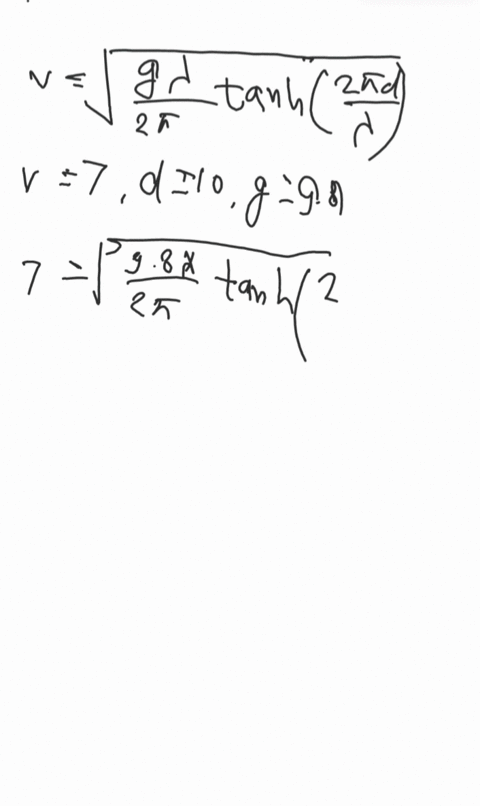 v = √(gλ/2π tanh(2πd/λ))
v = 7, d = 10, g = 9.8
7 = √(9.8λ/2π tanh(2